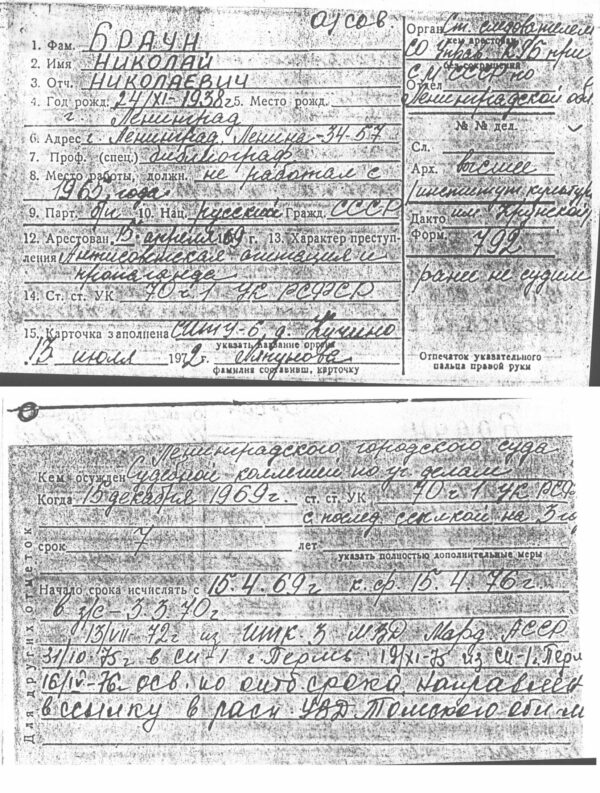 1. Фам. БРАУН
2. Имя НИКОЛАЙ
3. Отч. НИКОЛАЕВИЧ
4. Год рожд. 24/XI-1938 г. 5. Место рожд.
г. Ленинград
6. Адрес г. Ленинград Ленина-34-57
7. Проф. (спец.) библиограф
8. Место работы, должн. не работал с
1965 года
9. Парт. б/п 10. Нац. русский Гражд. СССР
12. Арестован 15 апреля 1969 г. 13. Характер преступ-
ления Антисоветская агитация и
пропаганда
14. Ст. ст. УК 70 ч. 1 УК РСФСР
15. Карточка заполнена ИТУ-6 д. Кучино
указать название органа
13 июля 1972 г.
фамилия составивш. карточку
Орган Ст. следователем
кем арестован
СО Управ. КГБ при
без сокращений
СМ СССР по
Отдел
Ленинградской обл.
№ № дел.
Сл.
Арх. высшее
/институт культуры
Дакто им. Крупской/
Форм. 792
ранее не судим
Отпечаток указательного
пальца правой руки
Ленинградского городского суда
Кем осужден Судебной коллегией по уг. делам
Когда 15 декабря 1969 г. ст. ст. УК 70 ч 1 УК РСФ
с послед ссылкой на 3 г
срок 7 лет
указать полностью дополнительные меры
Начало срока исчислять с 15.4.69 г к. ср 15.4.76 г.
в з/с - 3.3.70 г.
13/VII-72 г из ИТК-3 МВД Морд. АССР
31/10-75 г в СИ-1 г. Пермь 19/XI-75 из СИ-1 г. Перм
16/IV-76 осв. по отб срока направлен
в ссылку в расп. УВД Томского обл-
Для других отметок